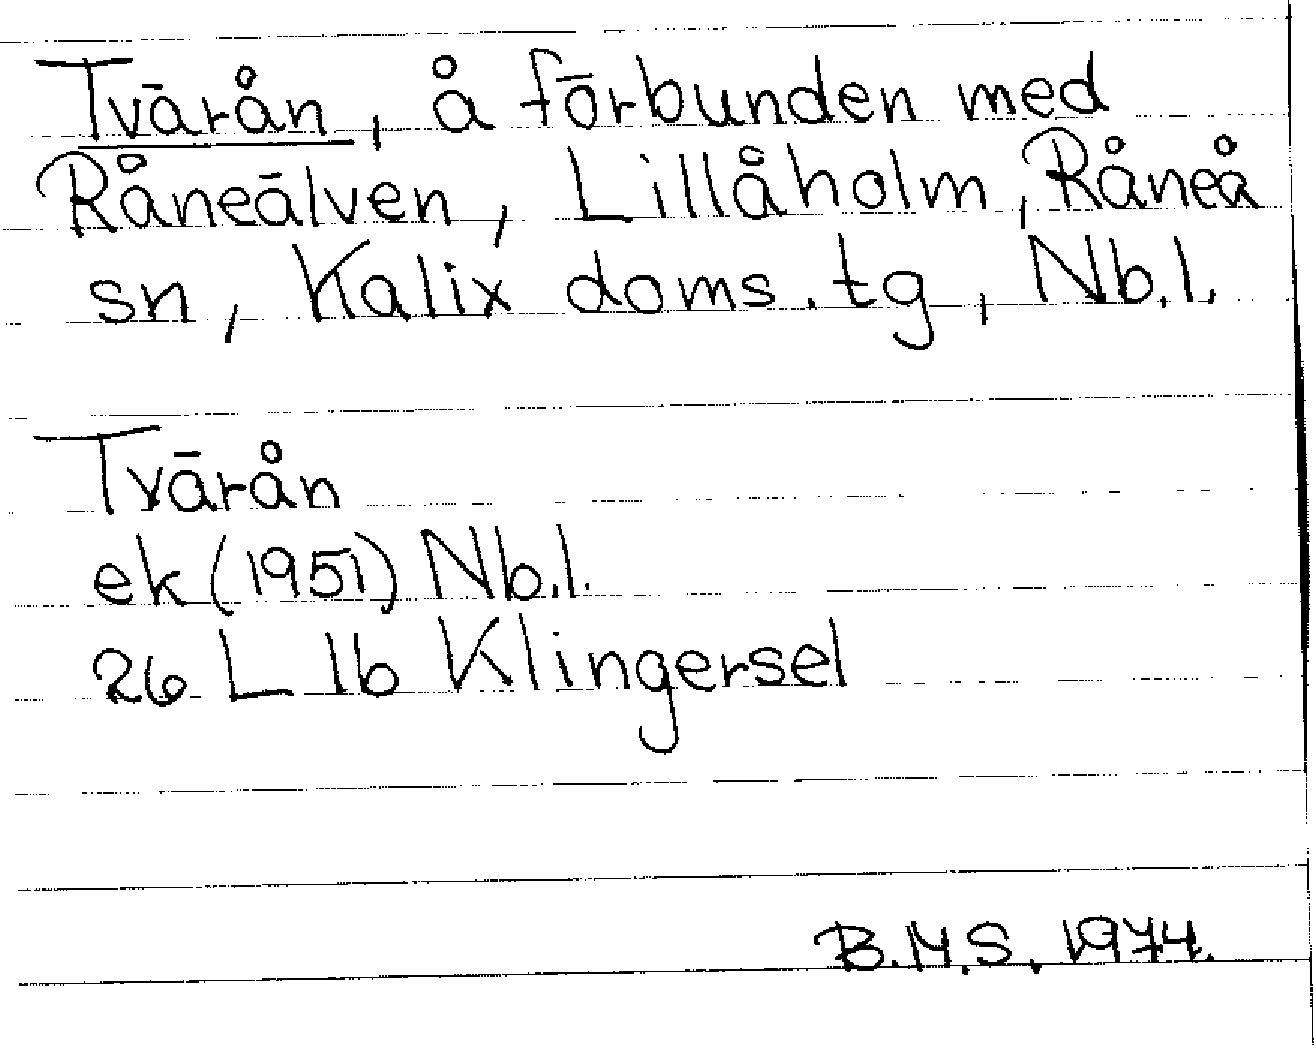 Tvärån, å förbunden med
Råneälven, Lillåholm, Råneå
sn, Kalix doms.tg, Nb.l.
Tvärån
ek (1951) Nb.l.
26 L 1b Klingersel
B.M.S. 1974.